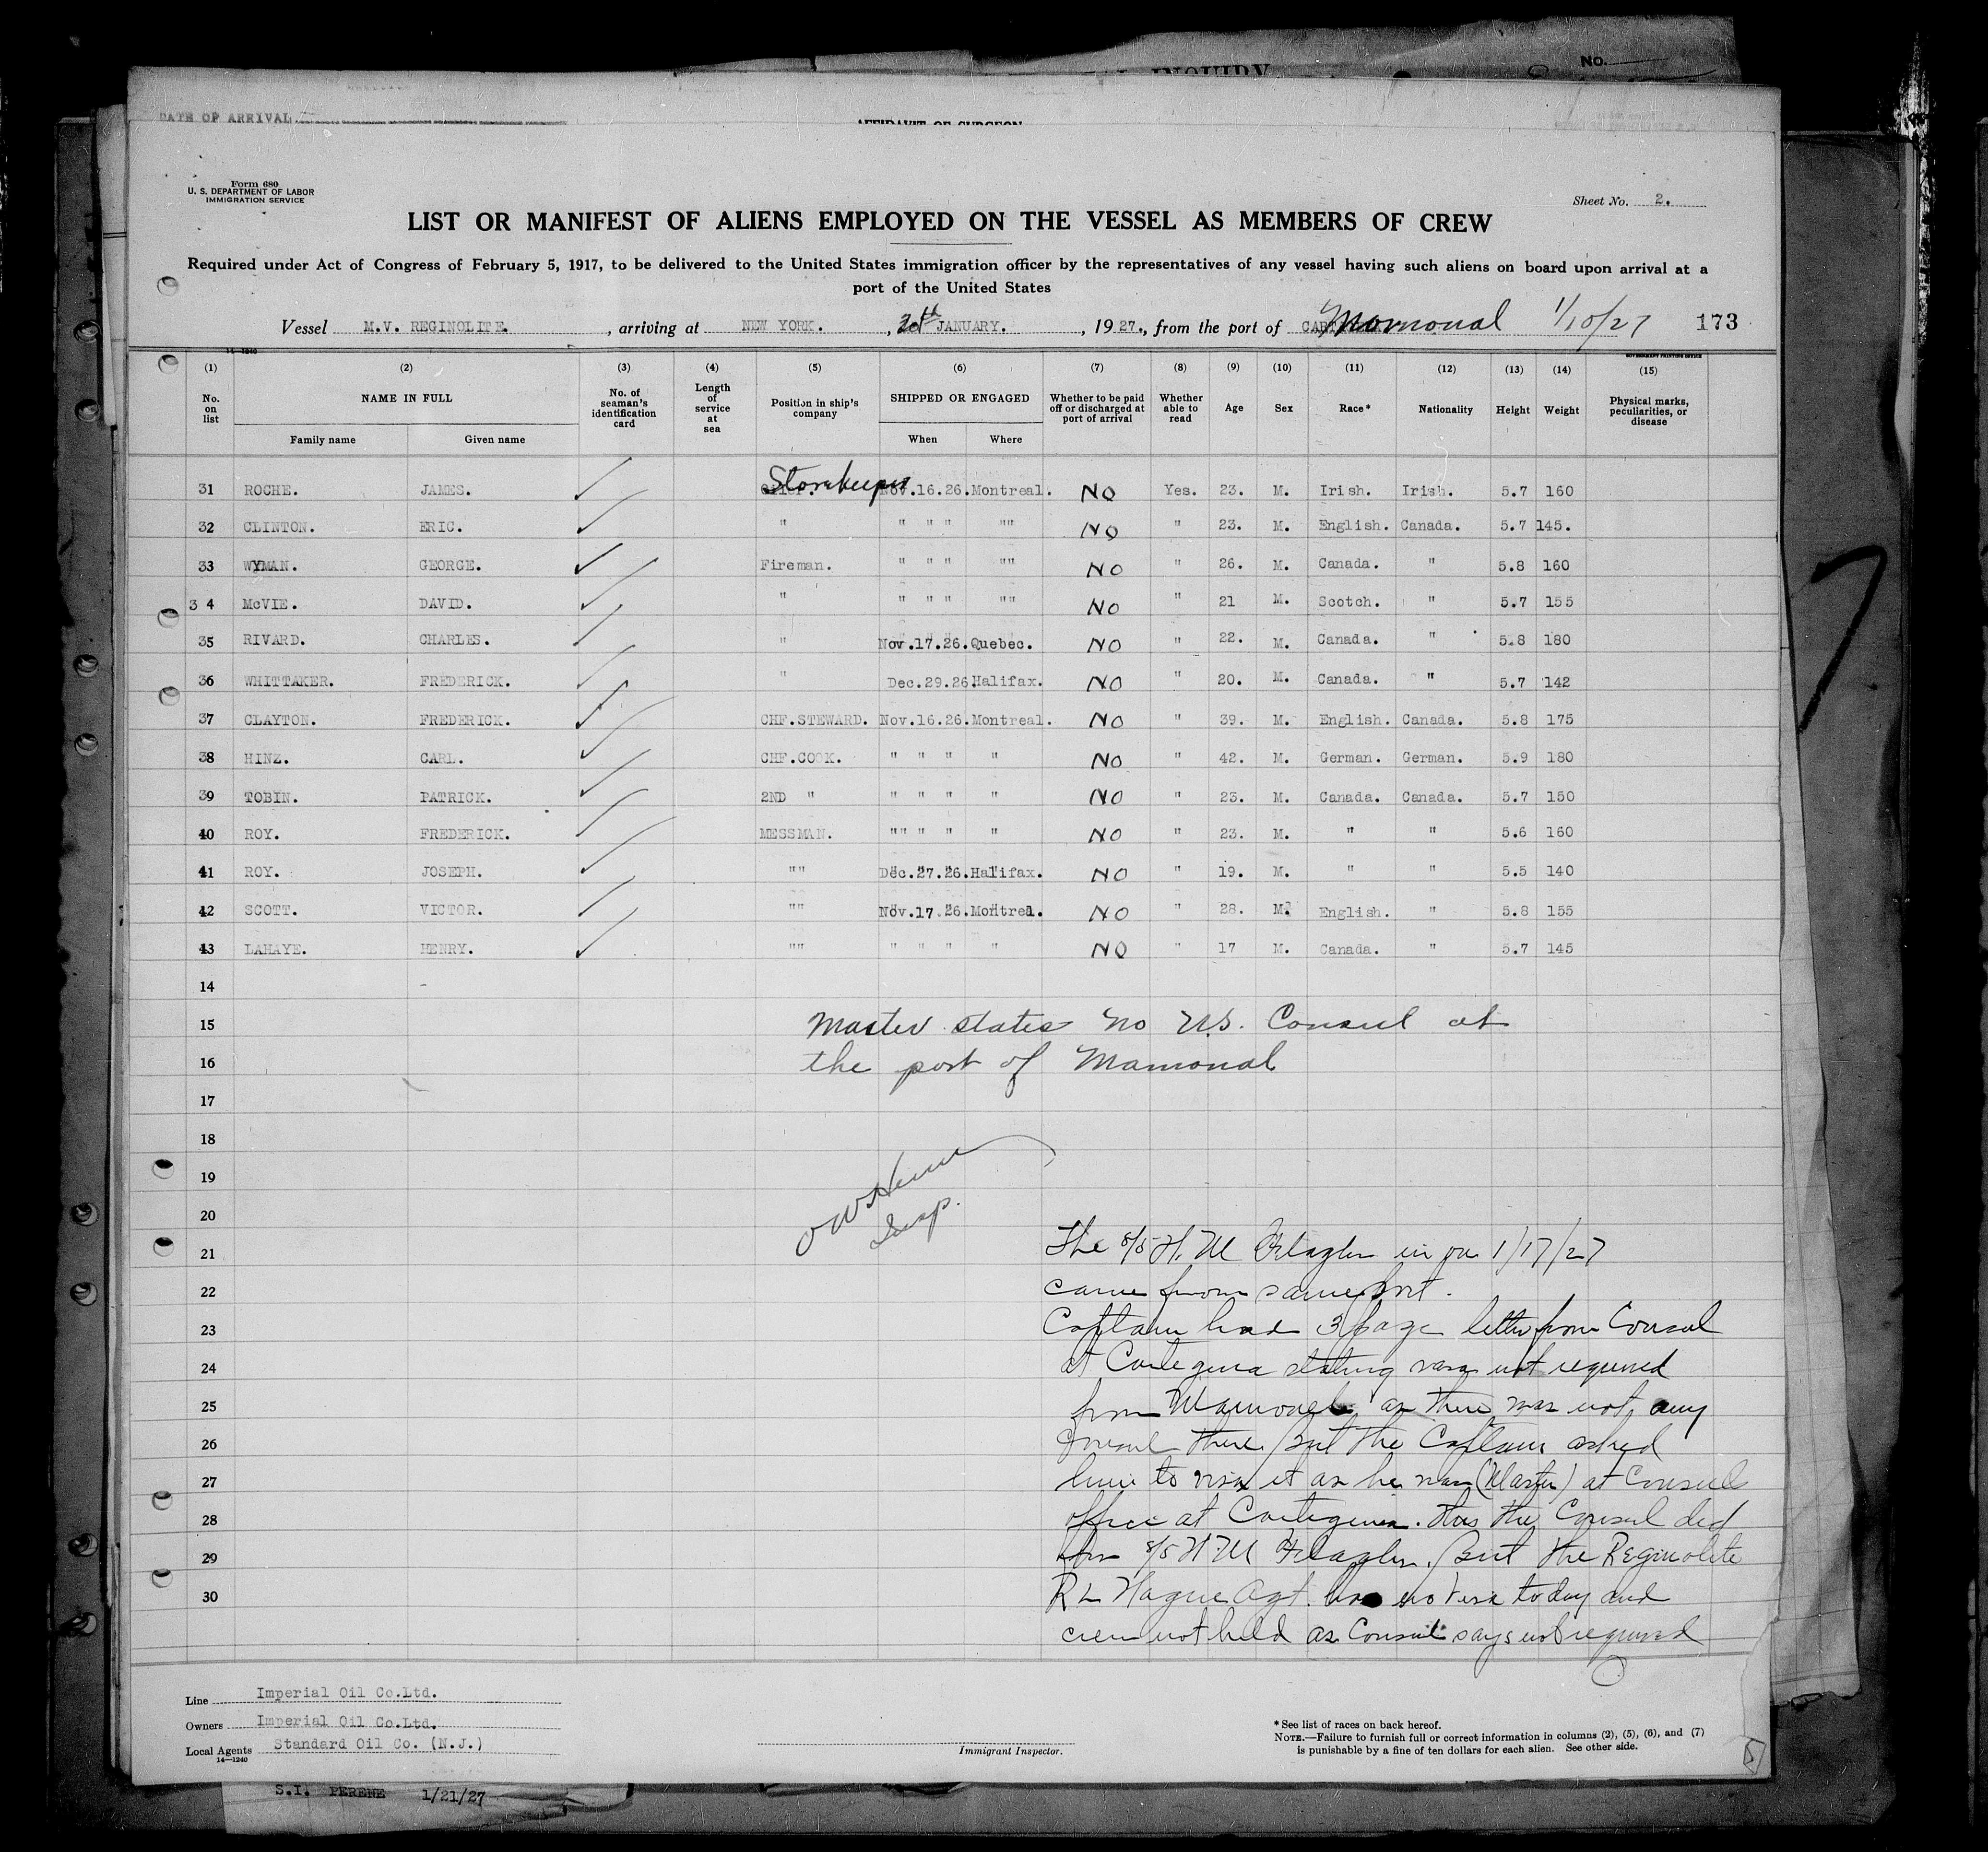 NO.
INQUIRY
DATE OF ARRIVAL
AFFIDAVIT OF SURGEON
Form 680
U. S. DEPARTMENT OF LABOR
IMMIGRATION SERVICE
Sheet No. 2.
LIST OR MANIFEST OF ALIENS EMPLOYED ON THE VESSEL AS MEMBERS OF CREW
Required under Act of Congress of February 5, 1917, to be delivered to the United States immigration officer by the representatives of any vessel having such aliens on board upon arrival at a
port of the United States
Vessel M.V. REGINOLITE. , arriving at NEW YORK. , 20th JANUARY. , 1927., from the port of Mamonal 1/10/27 173
14-1240
GOVERNMENT PRINTING OFFICE
(1) (2) (3) (4) (5) (6) (7) (8) (9) (10) (11) (12) (13) (14) (15)
No. on list NAME IN FULL No. of seaman's identification card Length of service at sea Position in ship's company SHIPPED OR ENGAGED Whether to be paid off or discharged at port of arrival Whether able to read Age Sex Race* Nationality Height Weight Physical marks, peculiarities, or disease
Family name Given name When Where
31 ROCHE. JAMES. Storekeeper Nov.16.26. Montreal. NO Yes. 23. M. Irish. Irish. 5.7 160
32 CLINTON. ERIC. " " " " "" NO " 23. M. English. Canada. 5.7 145.
33 WYMAN. GEORGE. Fireman. " " " "" NO " 26. M. Canada. " 5.8 160
34 McVIE. DAVID. " " " " "" NO " 21 M. Scotch. " 5.7 155
35 RIVARD. CHARLES. " Nov.17.26. Quebec. NO " 22. M. Canada. " 5.8 180
36 WHITTAKER. FREDERICK. " Dec.29.26. Halifax. NO " 20. M. Canada. " 5.7 142
37 CLAYTON. FREDERICK. CHF.STEWARD. Nov.16.26. Montreal. NO " 39. M. English. Canada. 5.8 175
38 HINZ. CARL. CHF.COOK. " " " " NO " 42. M. German. German. 5.9 180
39 TOBIN. PATRICK. 2ND " " " " " NO " 23. M. Canada. Canada. 5.7 150
40 ROY. FREDERICK. MESSMAN. "" " " " NO " 23. M. " " 5.6 160
41 ROY. JOSEPH. "" Dec.27.26. Halifax. NO " 19. M. " " 5.5 140
42 SCOTT. VICTOR. "" Nov.17.26. Montrea. NO " 28. M. English. " 5.8 155
43 LAHAYE. HENRY. "" " " " " NO " 17 M. Canada. " 5.7 145
14
15 Master states no U.S. Consul at
16 the port of Mamonal
17
18
19
20 Insp.
21 The S/S H. M Flagler in on 1/17/27
22 came from same port.
23 Captain had 3 page letter from Consul
24 at Cartegena stating visa not required
25 from Mamonal as there was not any
26 Consul there. But the Captain asked
27 him to visa it as he was (Master) at Consul
28 office at Cartegena. this the Consul did
29 for S/S H M Flagler. But the Reginolite
30 R L Hague Agt. has no visa today and
crew not held as Consul says not required
Line Imperial Oil Co.Ltd.
Owners Imperial Oil Co.Ltd.
Local Agents Standard Oil Co. (N.J.)
14—1240
Immigrant Inspector.
* See list of races on back hereof.
NOTE.—Failure to furnish full or correct information in columns (2), (5), (6), and (7)
is punishable by a fine of ten dollars for each alien. See other side.
S.I. PERENE 1/21/27